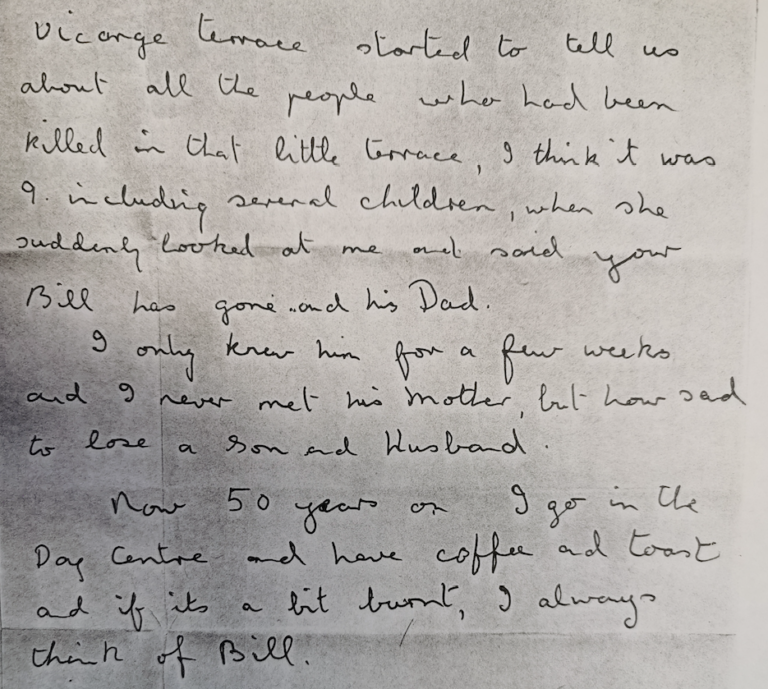 Vicarge terrace started to tell us
about all the people who had been
killed in that little terrace, I think it was
9. including several children, when she
suddenly looked at me and said your
Bill has gone and his Dad.
I only knew him for a few weeks
and I never met his Mother, but how sad
to lose a son and Husband.
Now 50 years on I go in the
Day Centre and have coffee and toast
and if its a bit burnt, I always
think of Bill.